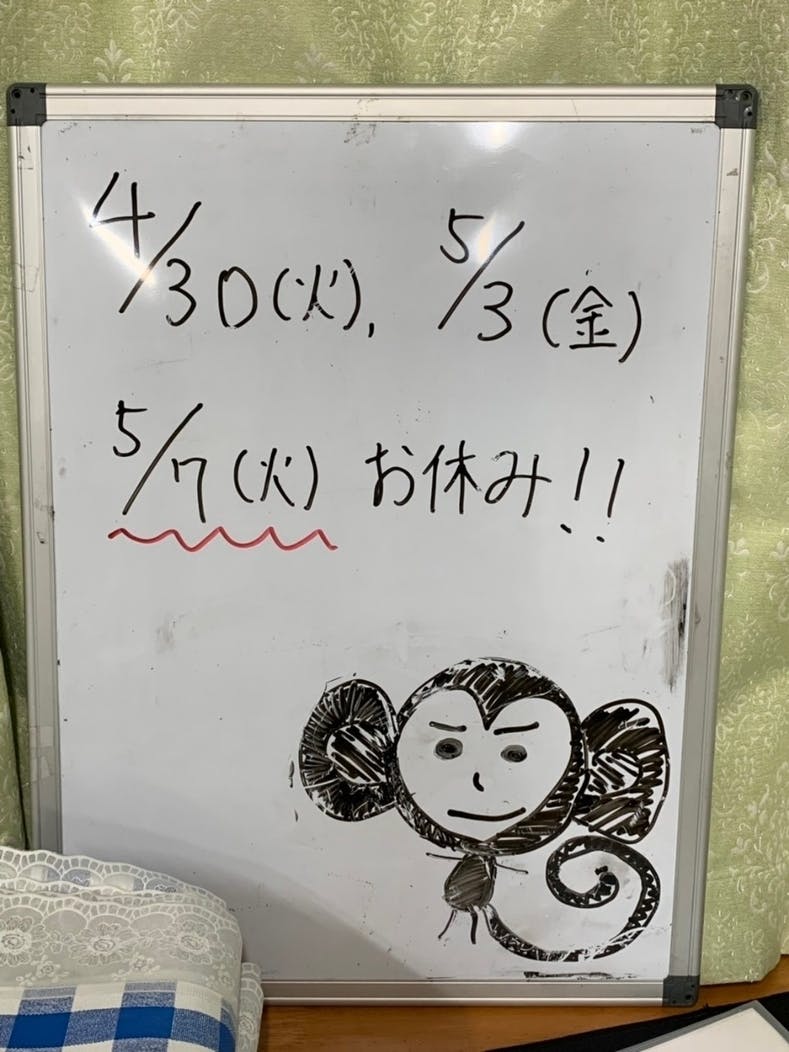 4/30(火), 5/3(金)
5/7(火) お休み!!